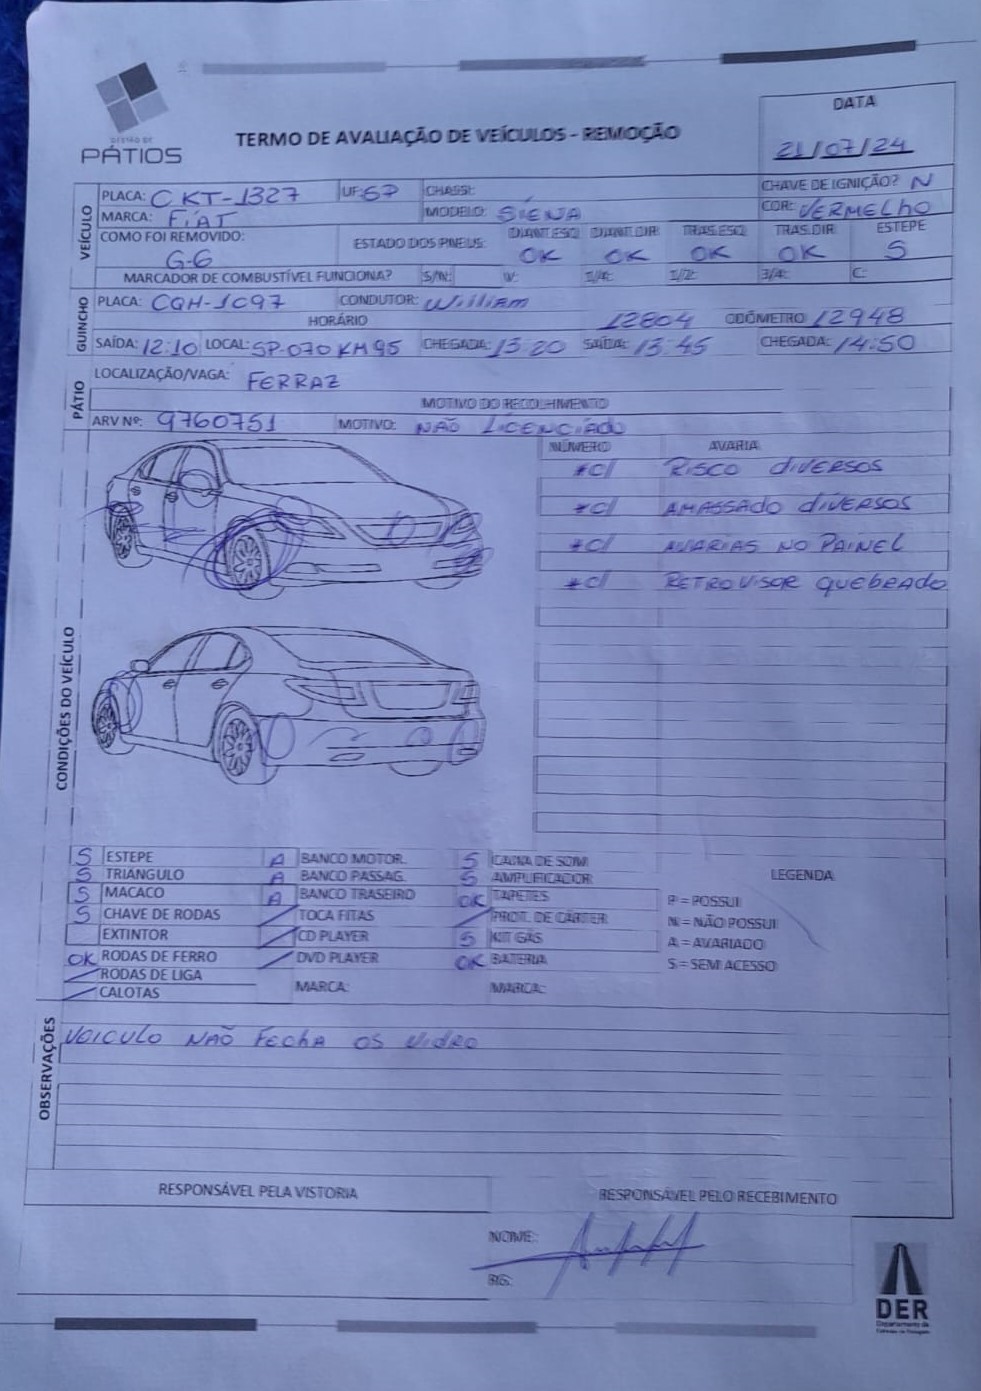 GESTÃO DE
PÁTIOS
TERMO DE AVALIAÇÃO DE VEÍCULOS - REMOÇÃO
DATA
21/07/24
VEÍCULO
PLACA: CKT-1327 UF: SP CHASSI: CHAVE DE IGNIÇÃO? N
MARCA: FIAT MODELO: SIENA COR: VERMELHO
COMO FOI REMOVIDO: G-6 ESTADO DOS PNEUS: DIANT.ESQ OK DIANT.DIR OK TRAS.ESQ OK TRAS.DIR OK ESTEPE S
MARCADOR DE COMBUSTÍVEL FUNCIONA? S/N: V: 1/4: 1/2: 3/4: C:
GUINCHO
PLACA: CQH-1C97 CONDUTOR: William
HORÁRIO 12804 ODÔMETRO 12948
SAÍDA: 12:10 LOCAL: SP-070 KM 95 CHEGADA: 13:20 SAÍDA: 13:45 CHEGADA: 14:50
PÁTIO
LOCALIZAÇÃO/VAGA: FERRAZ
MOTIVO DO RECOLHIMENTO
ARV Nº: 9760751 MOTIVO: NÃO LICENCIADO
CONDIÇÕES DO VEÍCULO
NÚMERO AVARIA
*c/ RISCO DIVERSOS
*c/ AMASSADO DIVERSOS
*c/ AVARIAS NO PAINEL
*c/ RETROVISOR QUEBRADO
S ESTEPE A BANCO MOTOR. S CAIXA DE SOM
S TRIANGULO A BANCO PASSAG. S AMPLIFICADOR LEGENDA
S MACACO A BANCO TRASEIRO OK TAPETES P = POSSUI
S CHAVE DE RODAS / TOCA FITAS / PROT. DE CÁRTER N = NÃO POSSUI
EXTINTOR / CD PLAYER S KIT GÁS A = AVARIADO
OK RODAS DE FERRO / DVD PLAYER OK BATERIA S = SEM ACESSO
/ RODAS DE LIGA MARCA: MARCA:
/ CALOTAS
OBSERVAÇÕES
VEICULO NÃO Fecha OS VIDRO
RESPONSÁVEL PELA VISTORIA RESPONSÁVEL PELO RECEBIMENTO
NOME:
RG:
DER
Departamento de